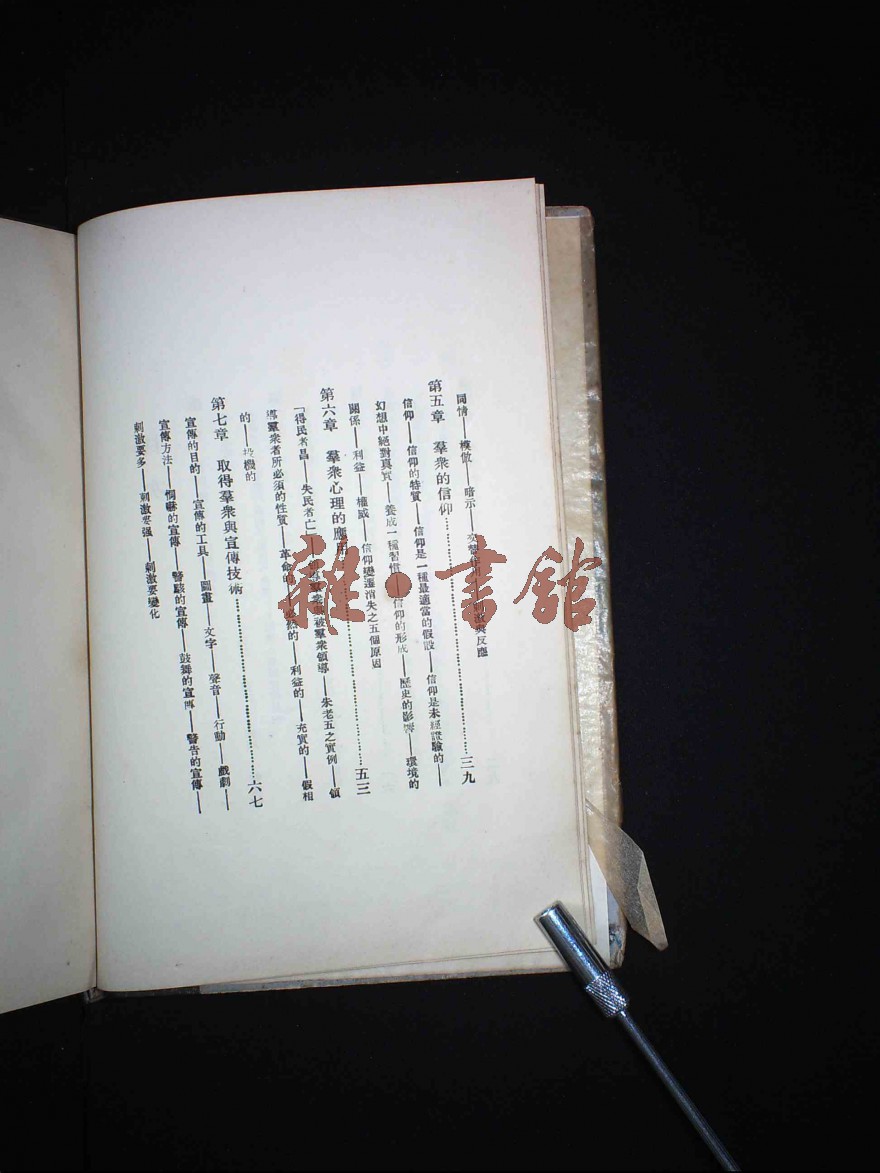 同情——模倣——暗示——刺激與反應
第五章　羣衆的信仰……三九
信仰——信仰的特質——信仰是一種最適當的假設——信仰是未經證驗的——
幻想中絕對真實——養成一種習慣——信仰的形成——歷史的影響——環境的
關係——利益——權威——信仰變遷消失之五個原因
第六章　羣衆心理的應用……五三
「得民者昌——失民者亡——羣衆被羣衆領導——朱老五之實例——領
導羣衆者所必須的性質——革命的——然的——利益的——充實的——假相
的——投機的
第七章　取得羣衆與宣傳技術……六七
宣傳的目的——宣傳的工具——圖畫——文字——聲音——行動——戲劇——
宣傳方法——恫嚇的宣傳——驚駭的宣傳——鼓舞的宣傳——警告的宣傳——
刺激要多——刺激要强——刺激要變化
雜·書館